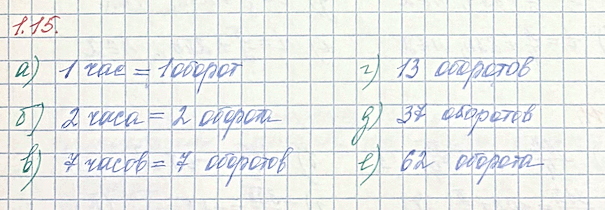 1.15.
а) 1 час = 1 оборот
б) 2 часа = 2 оборота
в) 7 часов = 7 оборотов
г) 13 оборотов
д) 37 оборотов
е) 62 оборота